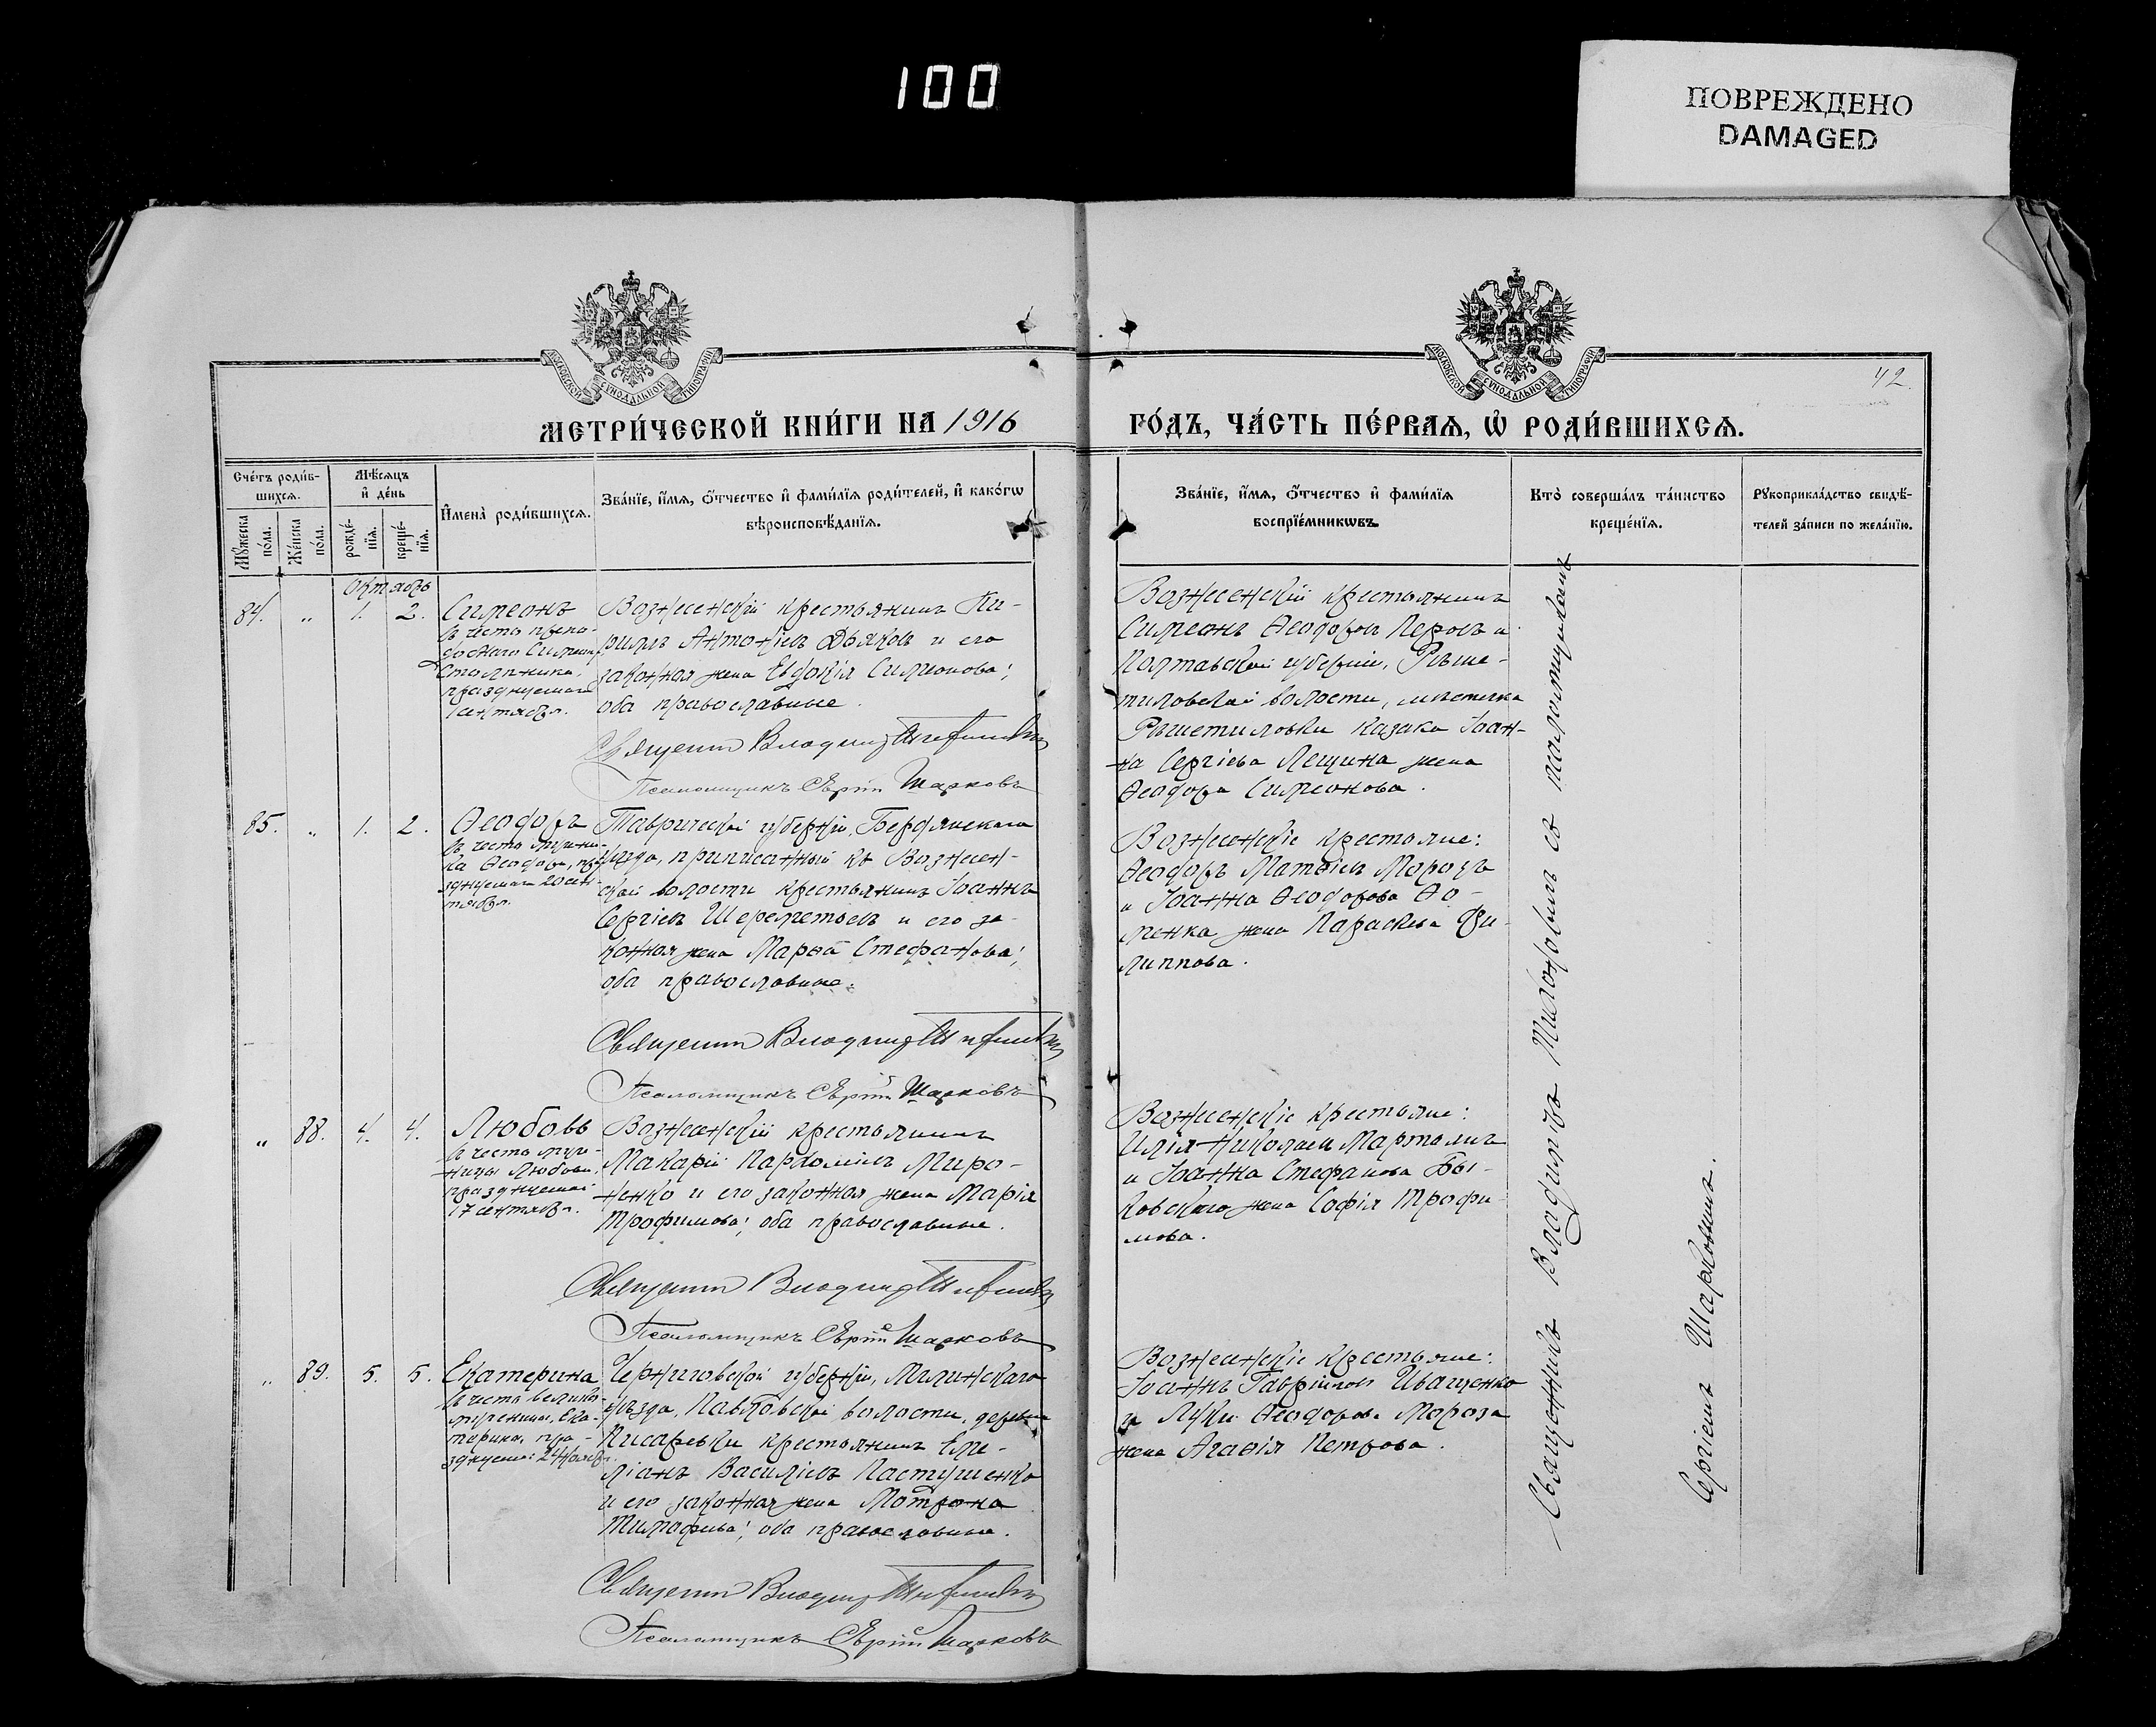 100
ПОВРЕЖДЕНО
DAMAGED
МОСКОВСКОЙ СѴНОДАЛЬНОЙ ТИПОГРАФІИ
МОСКОВСКОЙ СѴНОДАЛЬНОЙ ТИПОГРАФІИ
42.
МЕТРИ́ЧЕСКОЙ КНИ́ГИ НА 1916
ГО́ДЪ, ЧА́СТЬ ПЕ́РВАЯ, Ѡ҆ РОДИ́ВШИХСѦ.
Сче́тъ роди́в-
шихсѧ.
Мѣ́сѧцъ
и҆ де́нь
И҆мена̀ роди́вшихсѧ.
Зва́нїе, и҆́мѧ, ѻ҆́тчество и҆ фами́лїѧ роди́телей, и҆ како́гѡ
вѣроисповѣ́данїѧ.
Мꙋ́жеска
по́ла.
Же́нска
по́ла.
рожде́-
нїѧ.
креще́-
нїѧ.
Зва́нїе, и҆́мѧ, ѻ҆́тчество и҆ фами́лїѧ
воспрїе́мникѡвъ.
Кто̀ соверша́лъ та́инство
креще́нїѧ.
Рꙋкоприкла́дство свидѣ́-
телей за́писи по жела́нїю.
Октябрь
84. „ 1. 2. Симеонъ
въ честь препо-
добнаго Симеона
Столпника,
празднуемаго
1 сентября.
Вознесенскій крестьянинъ Ки-
риллъ Антоніевъ Дьяковъ и его
законная жена Евдокія Симеонова;
оба православные.
Священникъ Владимиръ
Псаломщикъ Сергій Шарковъ
Вознесенскій крестьянинъ
Симеонъ Ѳеодоровъ Перовъ и
Полтавской губерніи, Рѣше-
тиловской волости, мѣстечка
Рѣшетиловки казака Іоан-
на Сергіева Лещина жена
Ѳеодора Симеонова.
85. „ 1. 2. Ѳеодоръ
въ честь мучени-
ка Ѳеодора, пра-
зднуемаго 20 сен-
тября.
Таврической губерніи, Бердянскаго
уѣзда, приписанный къ Вознесен-
ской волости крестьянинъ Іоаннъ
Сергіевъ Шереметьевъ и его за-
конная жена Марѳа Стефанова;
оба православные.
Священникъ Владимиръ
Псаломщикъ Сергій Шарковъ
Вознесенскіе крестьяне:
Ѳеодоръ Матѳіевъ Морозъ
и Іоанна Ѳеодорова Ѳо-
менка жена Параскева Фи-
липпова.
„ 88. 4. 4. Любовь
въ честь муче-
ницы Любови,
празднуемой
17 сентября.
Вознесенскій крестьянинъ
Макарій Пархоміевъ Миро-
ненко и его законная жена Марія
Трофимова; оба православные.
Священникъ Владимиръ
Псаломщикъ Сергій Шарковъ
Вознесенскіе крестьяне:
Илія Николаевъ Мартыненъ
и Іоанна Стефанова Бы-
ковскаго жена Софія Трофи-
мова.
„ 89. 5. 5. Екатерина
въ честь велико-
мученицы Ека-
терины, пра-
зднуемой 24 ноября.
Черниговской губерніи, Мглинскаго
уѣзда, Павловской волости, деревни
Писаревки крестьянинъ Еме-
ліанъ Василіевъ Пастушенко
и его законная жена Матрона
Тимофеева; оба православные.
Священникъ Владимиръ
Псаломщикъ Сергій Шарковъ
Вознесенскіе крестьяне:
Іоаннъ Гавріиловъ Иващенко
и Луки Ѳеодорова Мороза
жена Агаѳія Петрова.
Священникъ Владимиръ съ псаломщикомъ
Сергіемъ Шарковымъ.